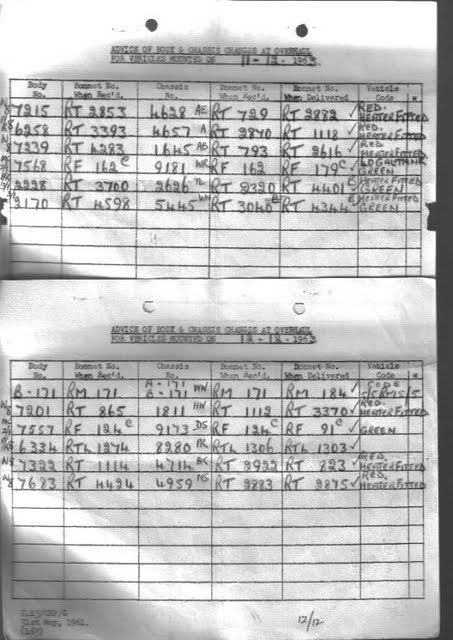 ADVICE OF BODY & CHASSIS CHANGES AT OVERHAUL
FOR VEHICLES MOUNTED ON 11-12-1963.
Body No. Bonnet No. When Rec'd. Chassis No. Bonnet No. When Rec'd. Bonnet No. When Delivered Vehicle Code *
7215 RT 2853 4628 AE RT 729 RT 2882 ✓ RED. HEATER FITTED
6258 RT 3393 4657 A RT 2870 RT 1118 ✓ RED. HEATER FITTED
7239 RT 4283 1645 AB RT 793 RT 2616 ✓ RED. HEATER FITTED
7568 RF 162 C 9181 WR RF 162 RF 179 C ✓ GREEN
2228 RT 3700 2626 TL RT 2320 RT 4401 B HEATER FITTED GREEN
2170 RT 4598 5445 WN RT 3040 B RT 4344 B HEATER FITTED GREEN
ADVICE OF BODY & CHASSIS CHANGES AT OVERHAUL
FOR VEHICLES MOUNTED ON 12-12-1963
Body No. Bonnet No. When Rec'd. Chassis No. Bonnet No. When Rec'd. Bonnet No. When Delivered Vehicle Code *
B-171 RM 171 A-171 B-171 WW RM 171 RM 184 ✓ CODE 5/5 RM5/5
7201 RT 865 1811 HW RT 1112 RT 3370 ✓ RED. HEATER FITTED
7557 RF 124 C 9173 DS RF 124 C RF 91 C ✓ GREEN
6334 RTL 1274 8280 PR RTL 1306 RTL 1303 ✓
7322 RT 1114 4714 RT 2922 RT 823 ✓ RED. HEATER FITTED
7683 RT 4424 4959 NS RT 2883 RT 2875 ✓ RED. HEATER FITTED
31st May, 1961.
(163)
12/12